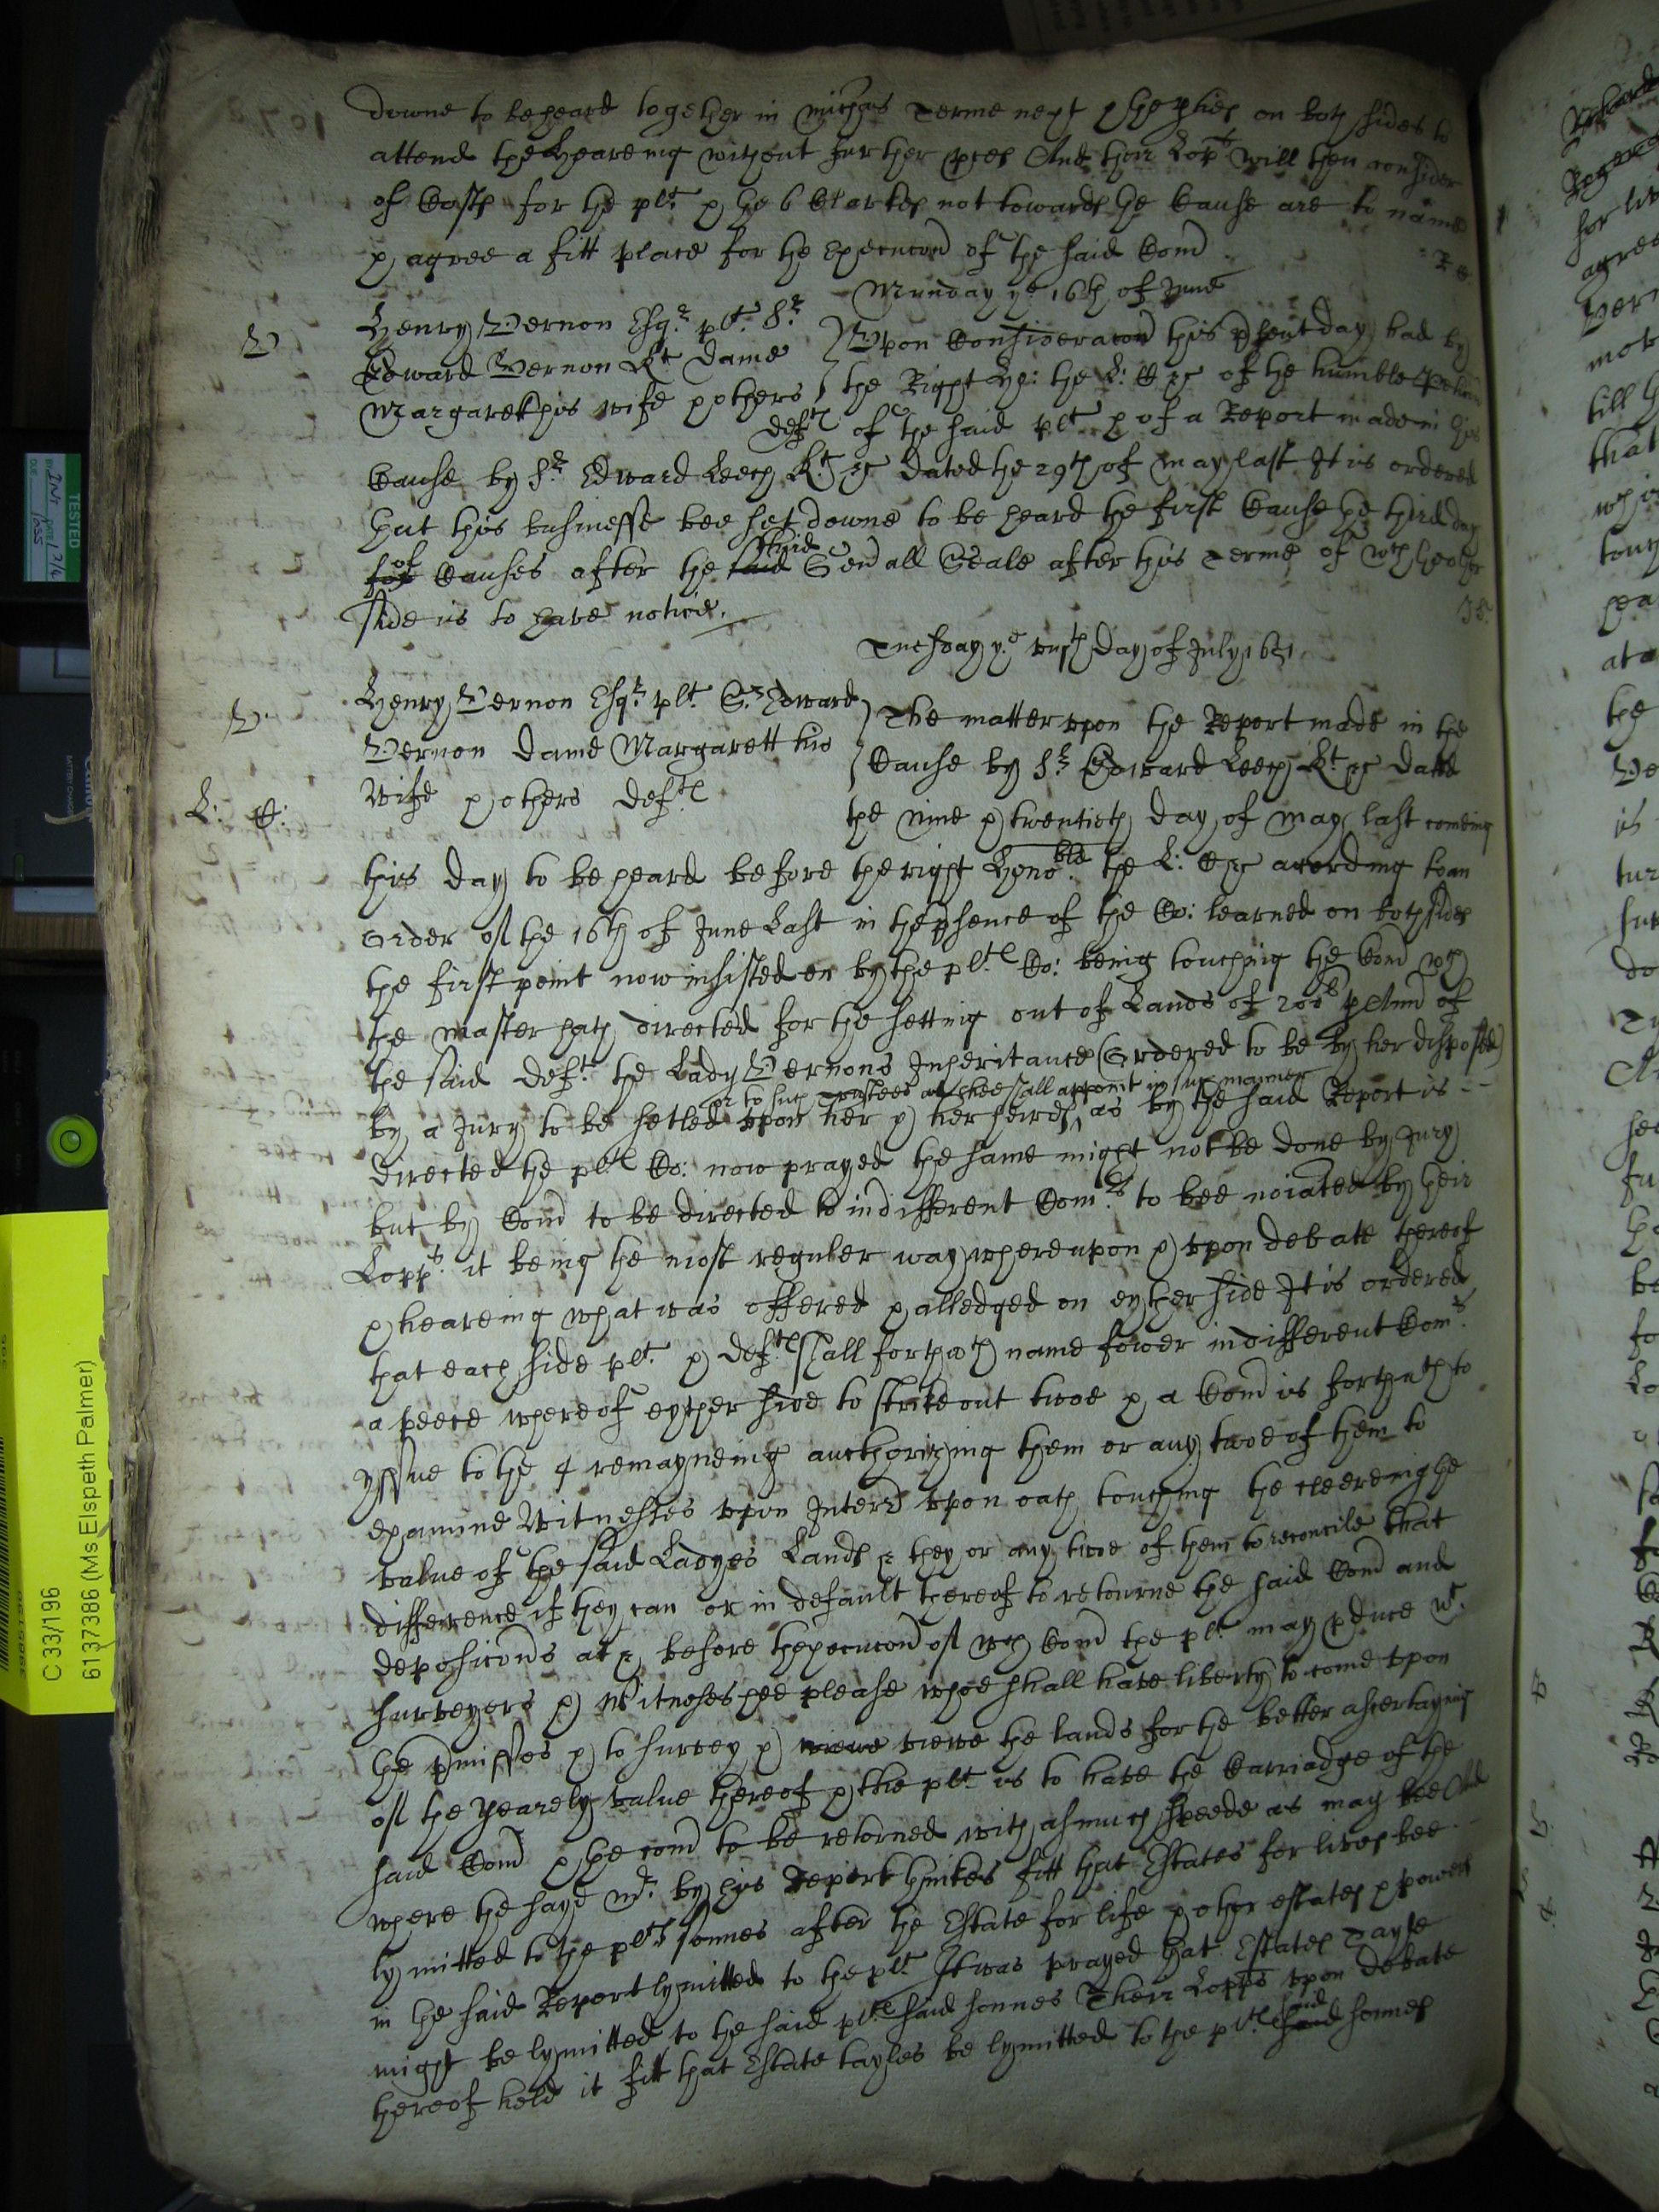 downe to be heard together in Michas Terme next & the pties on both sides to
attend the Heareing without further pces And their Lopps will then consider
of Costs for the plt & the 6 Clarkes not towards the Cause are to name
& agree a fitt place for the Execucon of the said Comn
Munday ye 16th of June
V Henry Vernon Esqr plt Sr
Edward Vernon Kt Dame
Margarett his wife & others
defts
Upon Consideracon this psent day had by
the Right Ho: the L: C &c of the humble Peticon
of the said plt & of a Report made in this
Cause by Sr Edward Leech Kt &c dated the 29th of May last It is ordered
that this businesse bee set downe to be heard the first Cause the third day
of Causes after the third Genall Seale after this Terme of wch the other
side is to have notice.
Tuesday ye viijth Day of July 1651
V Henry Vernon Esqr plt Sr Edward
Vernon Dame Margarett his
Wife & others defts
L: C:
The matter upon the Report made in the
Cause by Sr Edward Leech Kt &c Dated
the nine & twentieth day of May last comeing
this day to be heard before the right Honoble the L: C &c according to an
Order of the 16th of June Last in the psence of the Co: learned on both sides
the first point now insisted on by the plts Co: being touching the Comn wch
the Master hath directed for the setting out of Lands of 200l p Annu of
the said Deft the Lady Vernons Inheritance (Ordered to be by her disposed)
or to such Trustees as shee shall appoint in such manner
by a Jury to be setled upon her & her heires as by the said Report is
directed the plts Co: now prayed the same might not be done by Jury
but by Comn to be directed to indifferent Comrs to bee noiated by their
Lopps it being the most reguler way whereupon & upon debate thereof
& heareing what was offered & alledged on eyther side It is ordered
that each side plt & defts shall forthwth name fower indifferent Comrs
a peece whereof eyther side to strike out twoe & a Comn is forthwth to
yssue to the 4 remayneing aucthorizing them or any twoe of them to
examine Witnesses upon Interr upon oath touching the cleereing the
value of the said Ladyes Lands & they or any twoe of them to reconcile that
difference if they can or in default thereof to retourne the said Comn and
deposicons at & before thexecucon of wch Comn the plt may pduce wt
surveyers & Witnesses hee please whoe shall have liberty to come upon
the pmisses & to survey & viewe the lands for the better ascertayning
of the yearely value thereof & the plt is to have the Carriadge of the
said Comn & the comn to be retorned with as much speede as may bee And
where the sayd Mr by his Report thinkes fitt that Estates for lives bee
lymitted to the plts sonnes after the Estate for life & other estates & powers
in the said Report lymitted to the plt It was prayed that Estates Tayle
might be lymitted to the said plts said sonnes Their Lopps upon debate
thereof held it fitt that Estate tayles be lymitted to the plts said sonnes
C 33/196
6137386 (Ms Elspeth Palmer)
TESTED